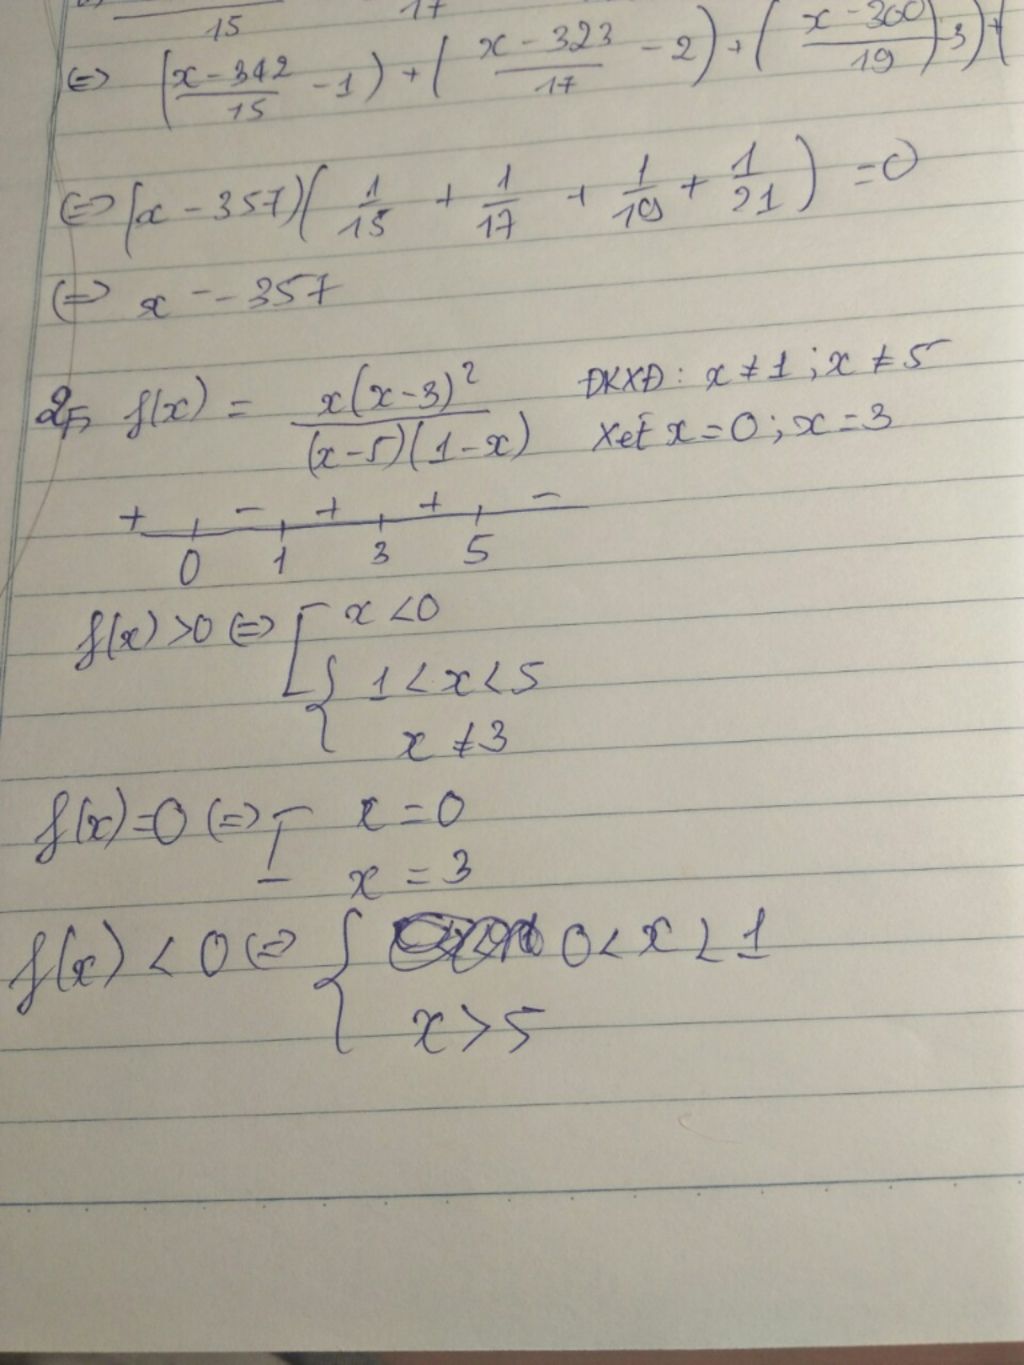 15 17
(=) (x-342/15 - 1) + (x-323/17 - 2) + (x-300/19 3) + (
(=) (x-357)(1/15 + 1/17 + 1/19 + 1/21) = 0
(=) x - - 357
f(x) = x(x-3)²/(x-5)(1-x) ĐKXĐ: x ≠ 1; x ≠ 5
Xét x = 0; x = 3
+ - + + -
0 1 3 5
f(x) > 0 (=) [ x < 0
{ 1 < x < 5
x ≠ 3
f(x) = 0 (=) [ x = 0
x = 3
f(x) < 0 (=) { 0 < x > 1
x > 5